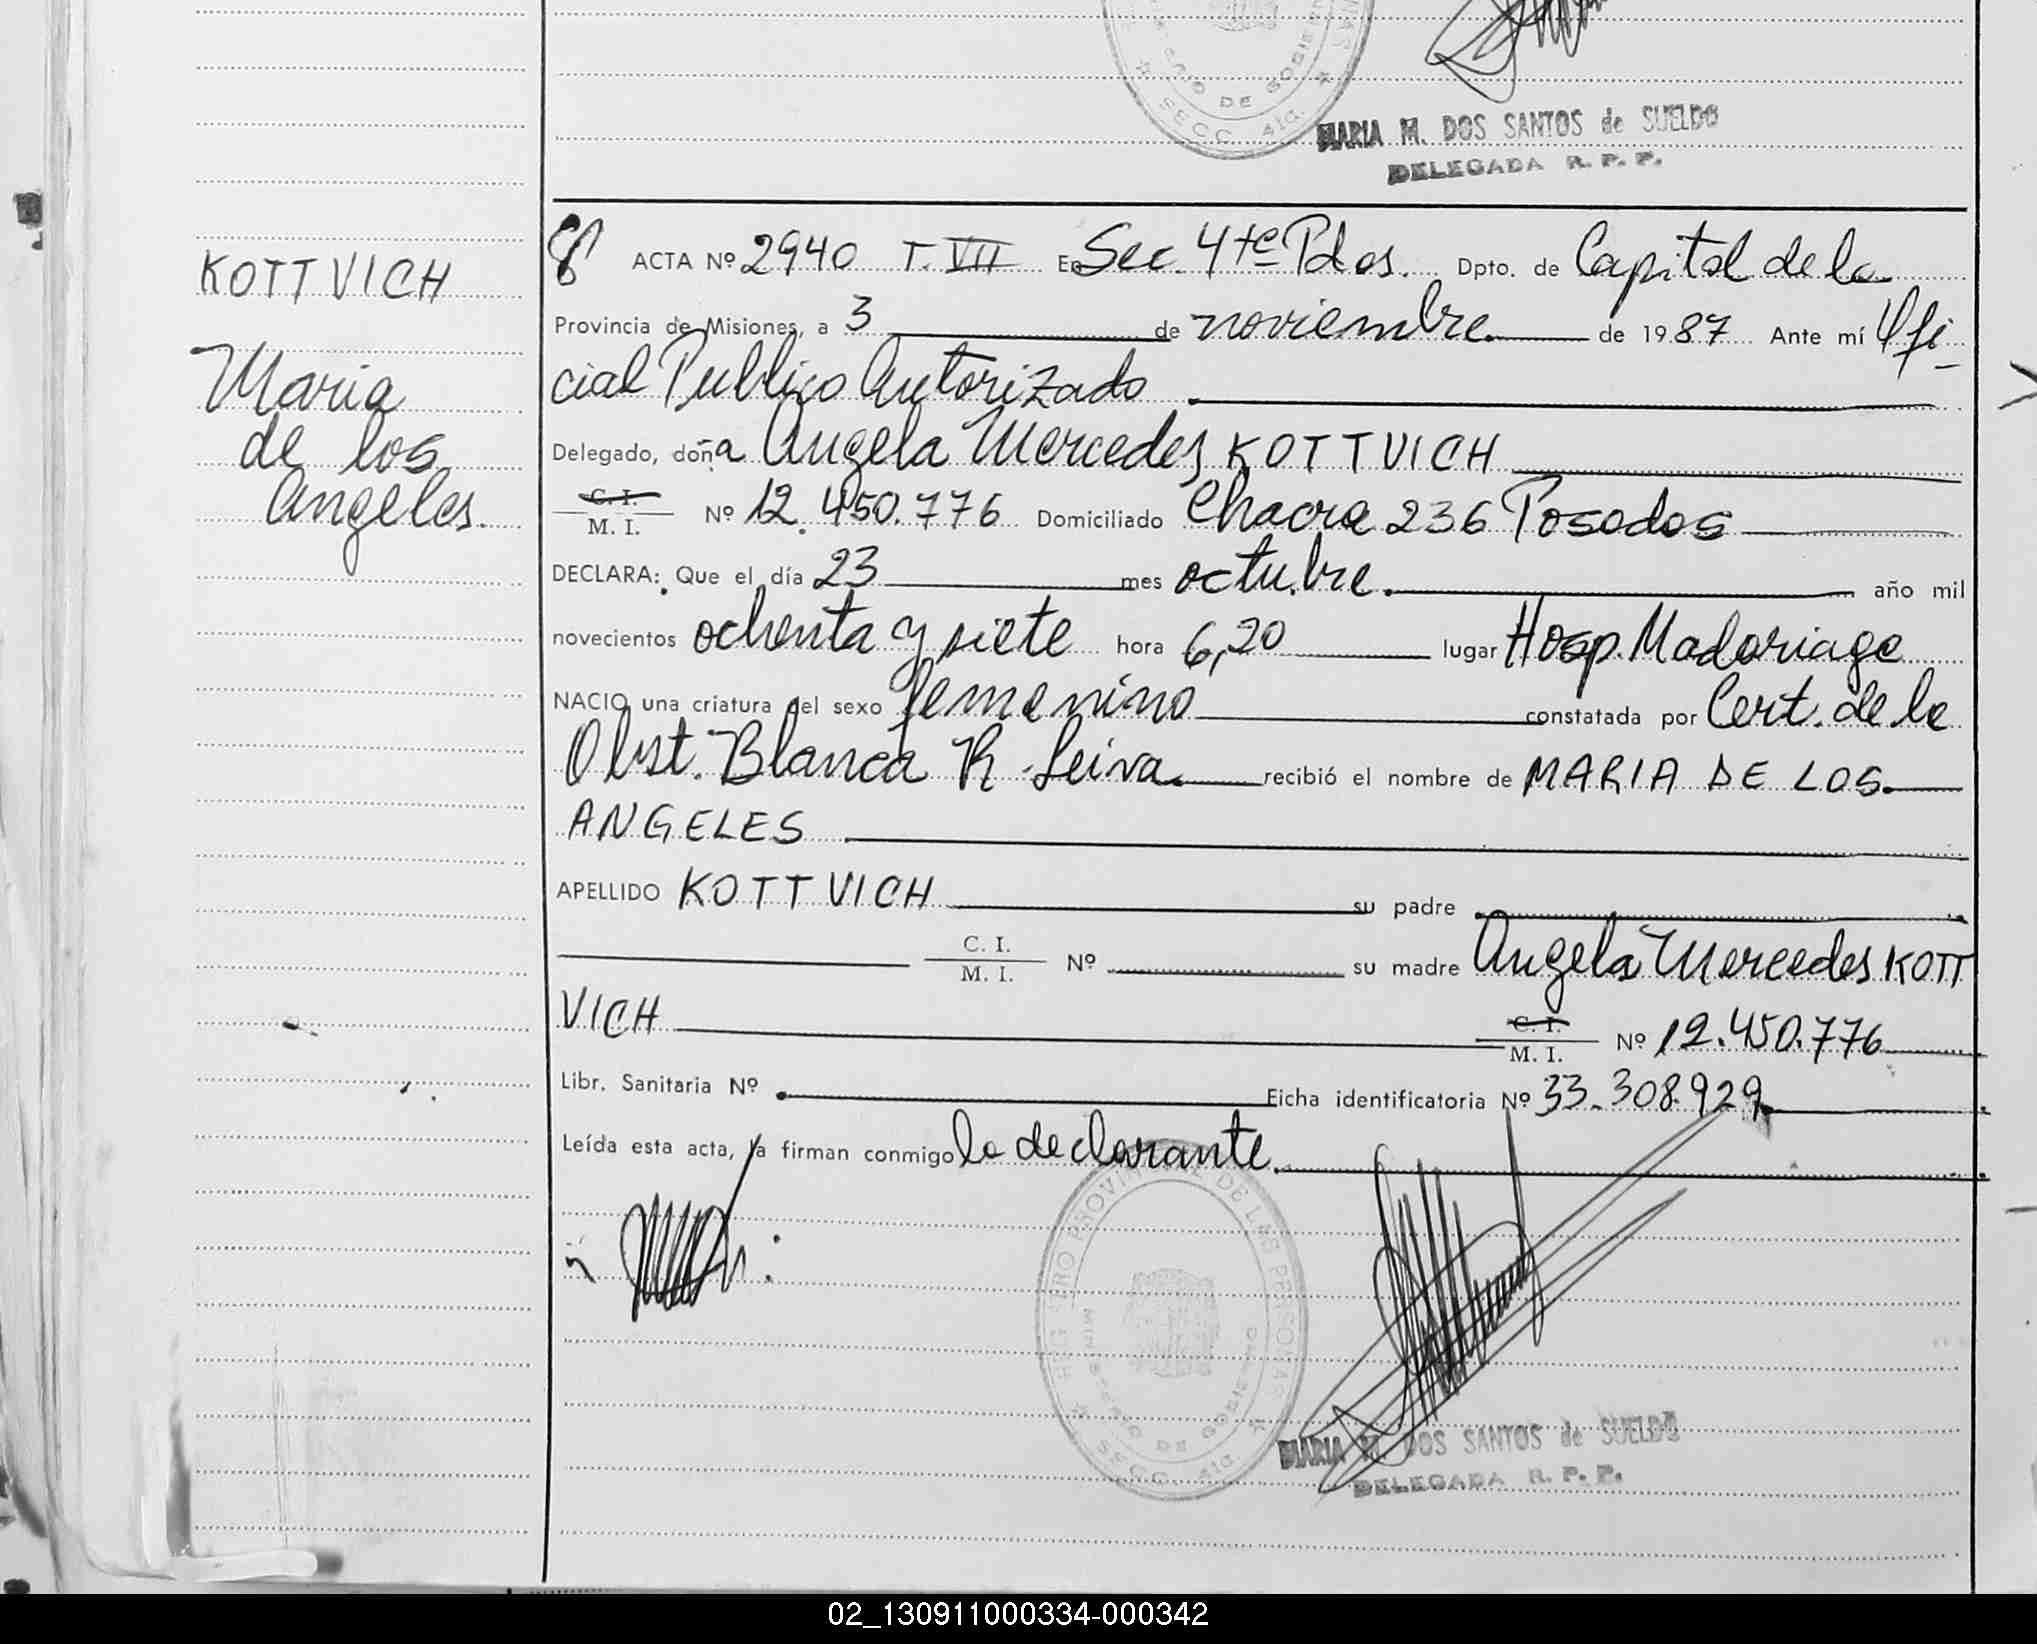 MARIA M. DOS SANTOS de SUELDO
DELEGADA R. P. P.
KOTTVICH
Maria
de los
Angeles.
ACTA Nº 2940 T. VII En Sec. 4ta Pdas. Dpto. de Capital de la
Provincia de Misiones, a 3 de noviembre. de 1987 Ante mí Ofi
cial Publico Autorizado
Delegado, doña Angela Mercedes KOTTVICH
C. I.
M. I. Nº 12.450.776 Domiciliado Chacra 236 Posadas
DECLARA: Que el día 23 mes octubre. año mil
novecientos ochenta y siete hora 6,20 lugar Hosp. Madariaga
NACIO una criatura del sexo femenino constatada por Cert. de la
Obst. Blanca R. Leiva. recibió el nombre de MARIA DE LOS
ANGELES
APELLIDO KOTTVICH su padre
C. I.
M. I. Nº su madre Angela Mercedes KOTT
VICH C. I.
M. I. Nº 12.450.776
Libr. Sanitaria Nº Ficha identificatoria Nº 33.308.929
Leída esta acta, la firman conmigo la declarante.
REGISTRO PROVINCIAL DE LAS PERSONAS
MINISTERIO DE GOBIERNO
SECC. 4ta.
MARIA M. DOS SANTOS de SUELDO
DELEGADA R. P. P.
02_130911000334-000342